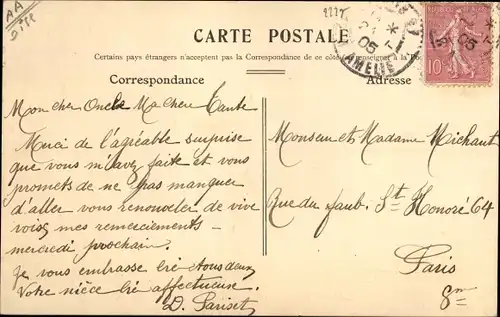 AA
Oise
CARTE POSTALE
Certains pays étrangers n'acceptent pas la Correspondance de ce côté (se renseigner à la
Correspondance
Adresse
05
AMELIE
10
Mon cher Oncle Ma chere Tante
Merci de l'agréable surprise
que vous m'avez faite et vous
promets de ne pas manquer
d'aller vous renouveler de vive
voix mes remerciements -
mercredi prochain.
Je vous embrasse tous deux
Votre nièce affectueuse.
D. Pariset
Monsieur et Madame Michaut
Rue du faub. St Honoré 64
Paris
8m